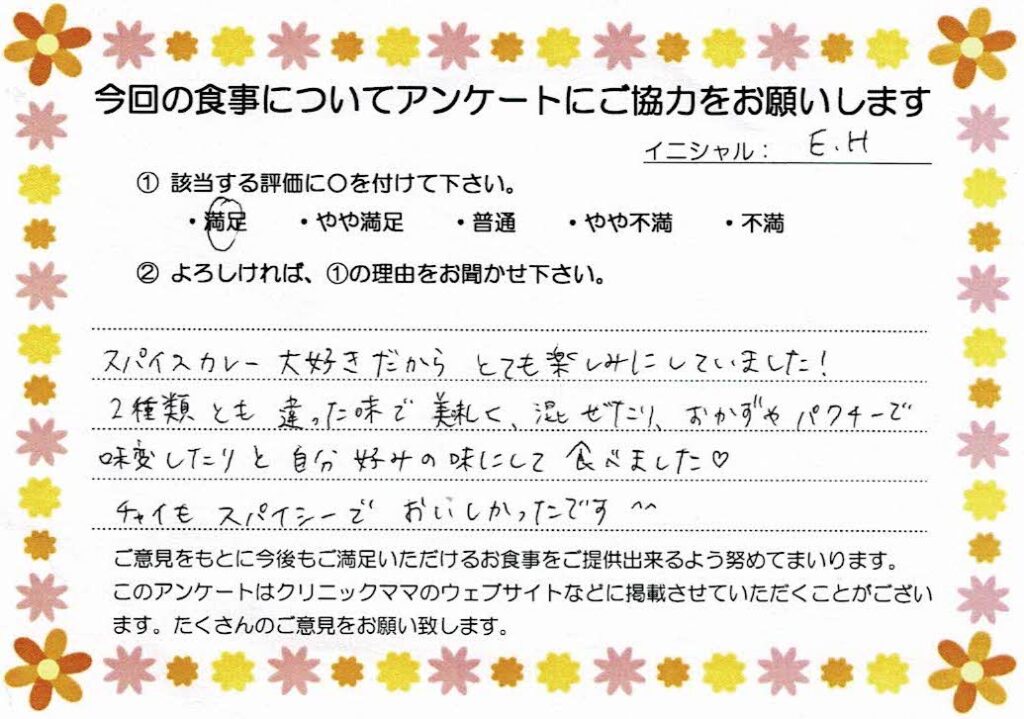 今回の食事についてアンケートにご協力をお願いします
イニシャル： E.H
① 該当する評価に○を付けて下さい。
・満足 ・やや満足 ・普通 ・やや不満 ・不満
② よろしければ、①の理由をお聞かせ下さい。
スパイスカレー大好きだから とても楽しみにしていました！
2種類とも 違った味で 美味しく、混ぜたり、おかずや パクチーで
味変したりと 自分好みの味にして 食べました♡
チャイも スパイシーで おいしかったです ^^
ご意見をもとに今後もご満足いただけるお食事をご提供出来るよう努めてまいります。
このアンケートはクリニックママのウェブサイトなどに掲載させていただくことがござい
ます。たくさんのご意見をお願い致します。